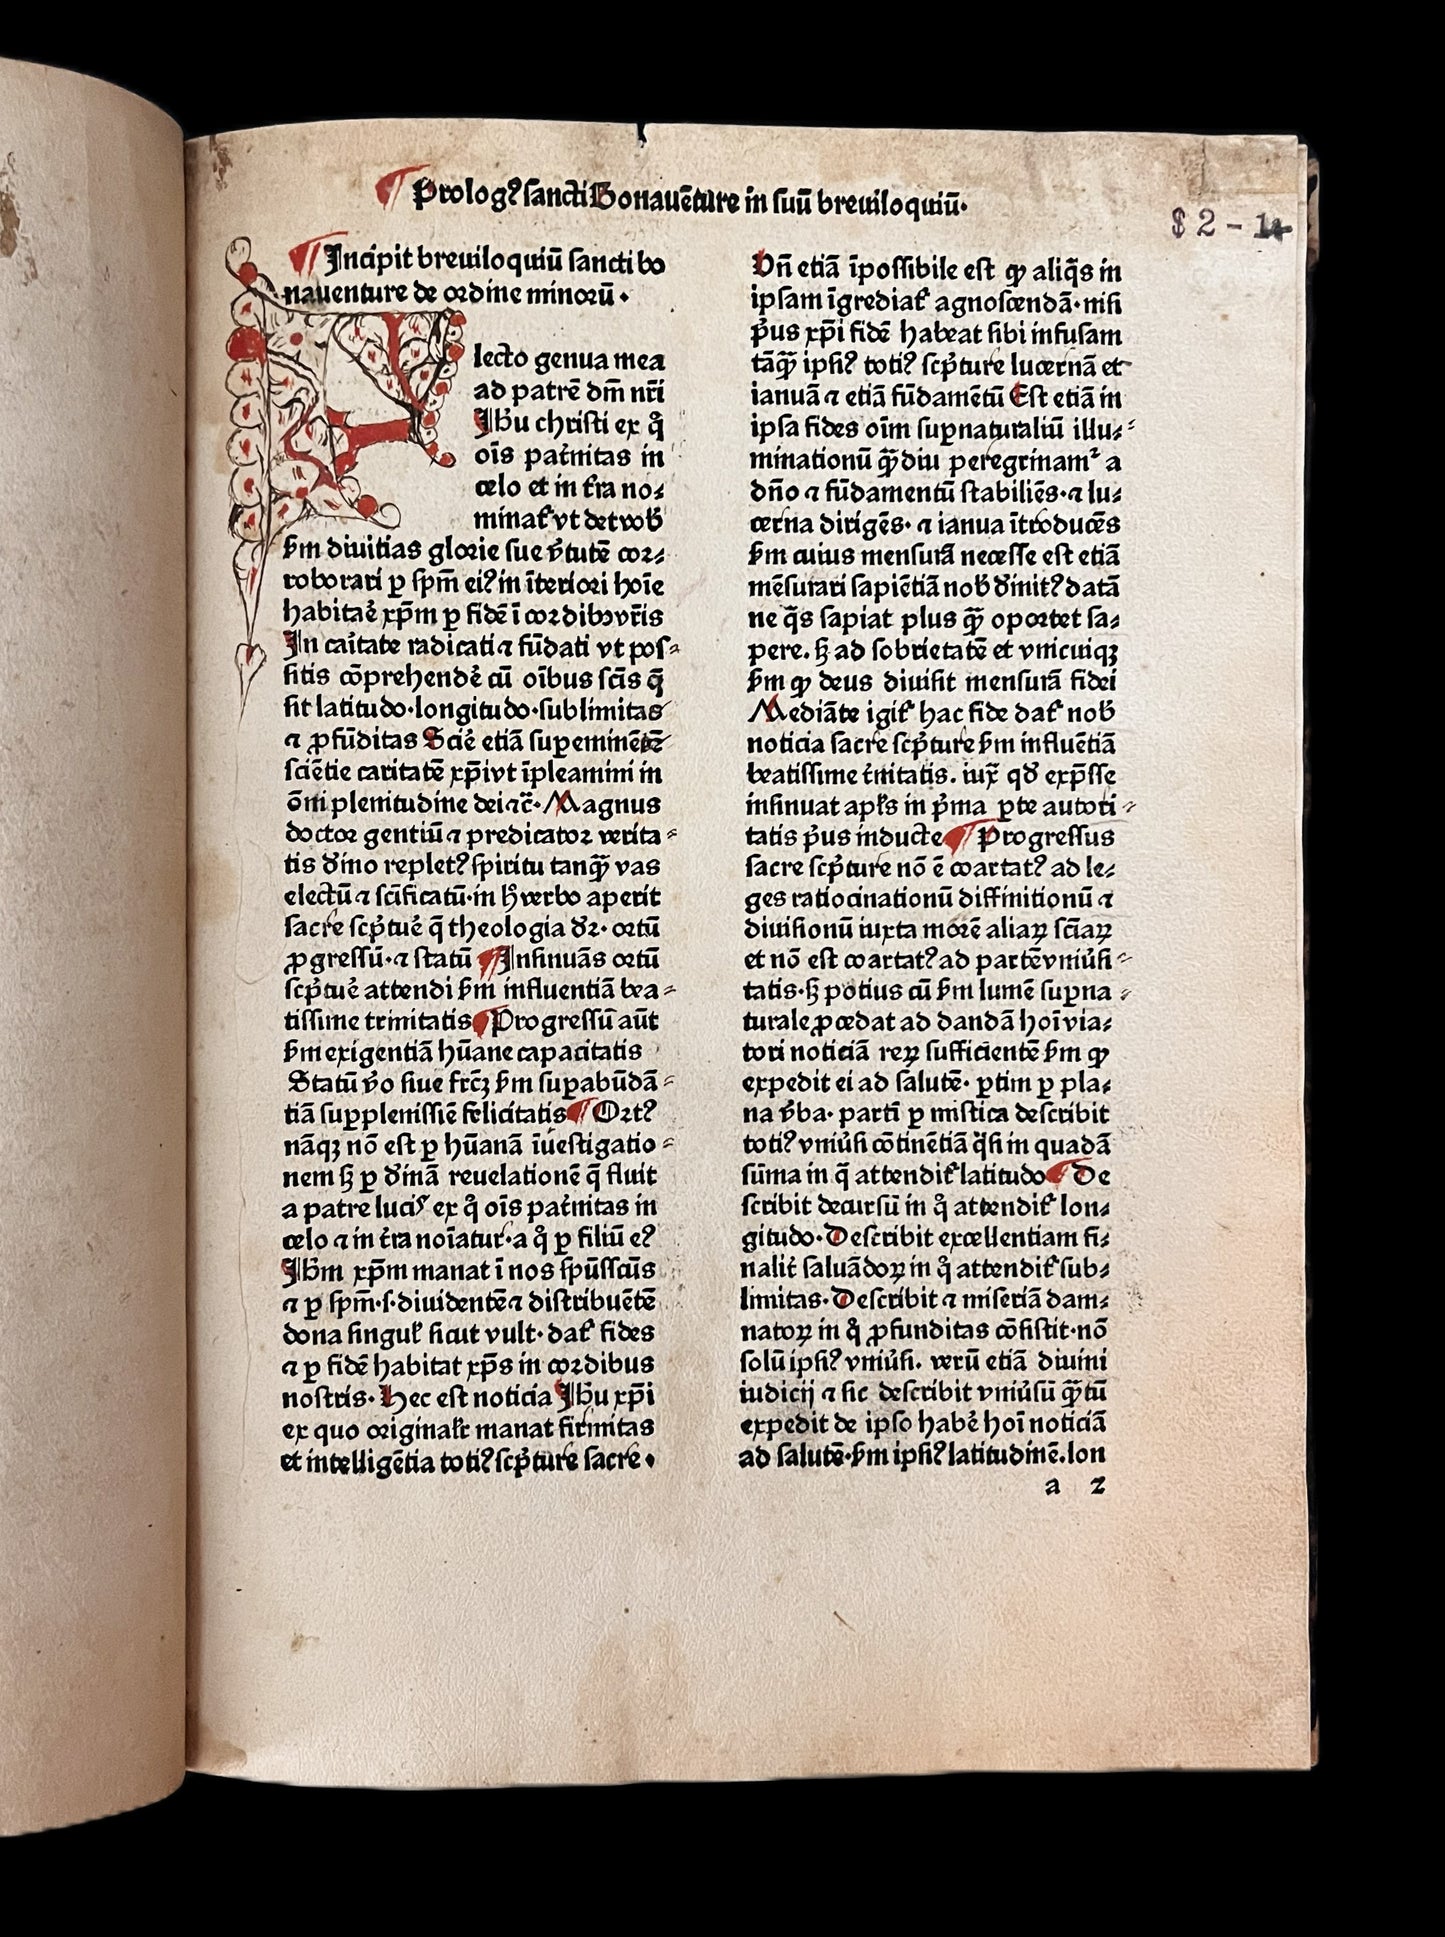 ¶ Prologꝰ sancti Bonauēture in suū breuiloquiū.
$ 2 - 14
¶ Incipit breuiloquiū sancti bo
nauenture de ordine minorū.
F
lecto genua mea
ad patrē dm̄ nr̄i
Jhu christi ex q̊
oīs pat̓nitas in
celo et in t̓ra no⸗
minat᷑ vt det vob̓
ẜm diuitias glorie sue v̓tutē cor⸗
roborari ꝑ spm̄ eiꝰ in īteriori hoīe
habitaē xp̄m ꝑ fidē ī cordibꝫ vr̄is
In caītate radicati ⁊ fūdati vt pos⸗
sitis cōprehendē cū oībus scīs q̄
sit latitudo·longitudo·sublimitas
⁊ ꝓfūditas Scīe etiā supeminētē
sciētie caritatē xp̄i vt īpleamini in
ōni plenitudine dei ⁊c̄. Magnus
doctor gentiū ⁊ predicator verita⸗
tis diīno repletꝰ spiritu tanqꝫ̄ vas
electū ⁊ scīficatū·in h̊ verbo aperit
sacre scp̓tuē q̄ theologia dꝛ. ortū
ꝓgressū·⁊ statū ¶ Insinuās ortū
scp̓tuē attendi ẜm influentiā bea⸗
tissime trinitatis ¶ Progressū aūt
ẜm exigentiā hūane capacitatis
Statū v̓o siue frc̄ꝫ ẜm supabūdā⸗
tiā supplenissiē felicitatis ¶ Ortꝰ
nāqꝫ nō est ꝑ hūanā īuestigatio⸗
nem sꝫ ꝑ diīnā reuelationē q̄ fluit
a patre luciꝭ ex q̊ oīs pat̓nitas in
celo ⁊ in t̓ra noīatur·a q̊ ꝑ filiū eꝰ
Jhm̄ xp̄m manat ī nos spūsscūs
⁊ ꝑ spm̄·s·diuidentē ⁊ distribuētē
dona singul̓ sicut vult· dat᷑ fides
⁊ ꝑ fidē habitat xp̄s in cordibus
nostris· Hec est noticia Jhu xp̄i
ex quo originalr̓ manat firmitas
et intelligētia totiꝰ scp̓ture sacre.
Vn̄ etiā īpossibile est qꝫ aliq̄s in
ipsam īgrediat᷑ agnoscendā· nisi
p̓us xp̄i fidē habeat sibi infusam
tāqꝫ̄ ipsiꝰ totiꝰ scp̓ture lucernā et
ianuā ⁊ etiā fūdamētū Est etiā in
ipsa fides oīm sup̄naturaliū illu⸗
minationū qꝫ̄diu peregrinamᷣ a
dn̄o ⁊ fūdamentū stabiliēs·⁊ lu⸗
cerna dirigēs· ⁊ ianua ītroducēs
ẜm cuius mensurā necesse est etiā
mēsurari sapiētiā nob̓ diīnitꝰ datā
ne q̄s sapiat plus qꝫ̄ oportet sa⸗
pere. sꝫ ad sobrietatē et vnicuiqꝫ
ẜm qꝫ deus diuisit mensurā fidei
Mediāte igit᷑ hac fide dat᷑ nob̓
noticia sacre scp̓ture ẜm influētiā
beatissime t̓nitatis. iux̄ qd̓ exp̄sse
insinuat apl̓s in p̓ma ꝑte autori⸗
tatis p̓us inducte ¶ Progressus
sacre scp̓ture nō ē coartatꝰ ad le⸗
ges ratiocinationū diffinitionū ⁊
diuisionū iuxta morē aliaꝝ sciaꝝ
et nō est coartatꝰ ad partē vniūsi⸗
tatis·sꝫ potius cū ẜm lumē sup̄na⸗
turale ꝓcedat ad dandā hoī via⸗
tori noticiā reꝝ sufficientē ẜm qꝫ
expedit ei ad salutē· ꝑtim ꝑ pla⸗
na v̓ba· partī ꝑ mistica describit
totiꝰ vniūsi cōtinētiā q̄si in quadā
sūma in q̄ attendit᷑ latitudo ¶ De
scribit decursū in q̊ attendit᷑ lon⸗
gitudo· Describit excellentiam fi⸗
nalit̓ saluādoꝝ in q̊ attendit᷑ sub⸗
limitas· Describit ⁊ miseriā dam⸗
natoꝝ in q̊ ꝓfunditas cōsistit·nō
solū ipsiꝰ vniūsi. verū etiā diuini
iudicij ⁊ sic describit vniūsū qꝫ̄tū
expedit de ipso habē hoī noticiā
ad salutē·ẜm ipsiꝰ latitudinē.lon
a 2